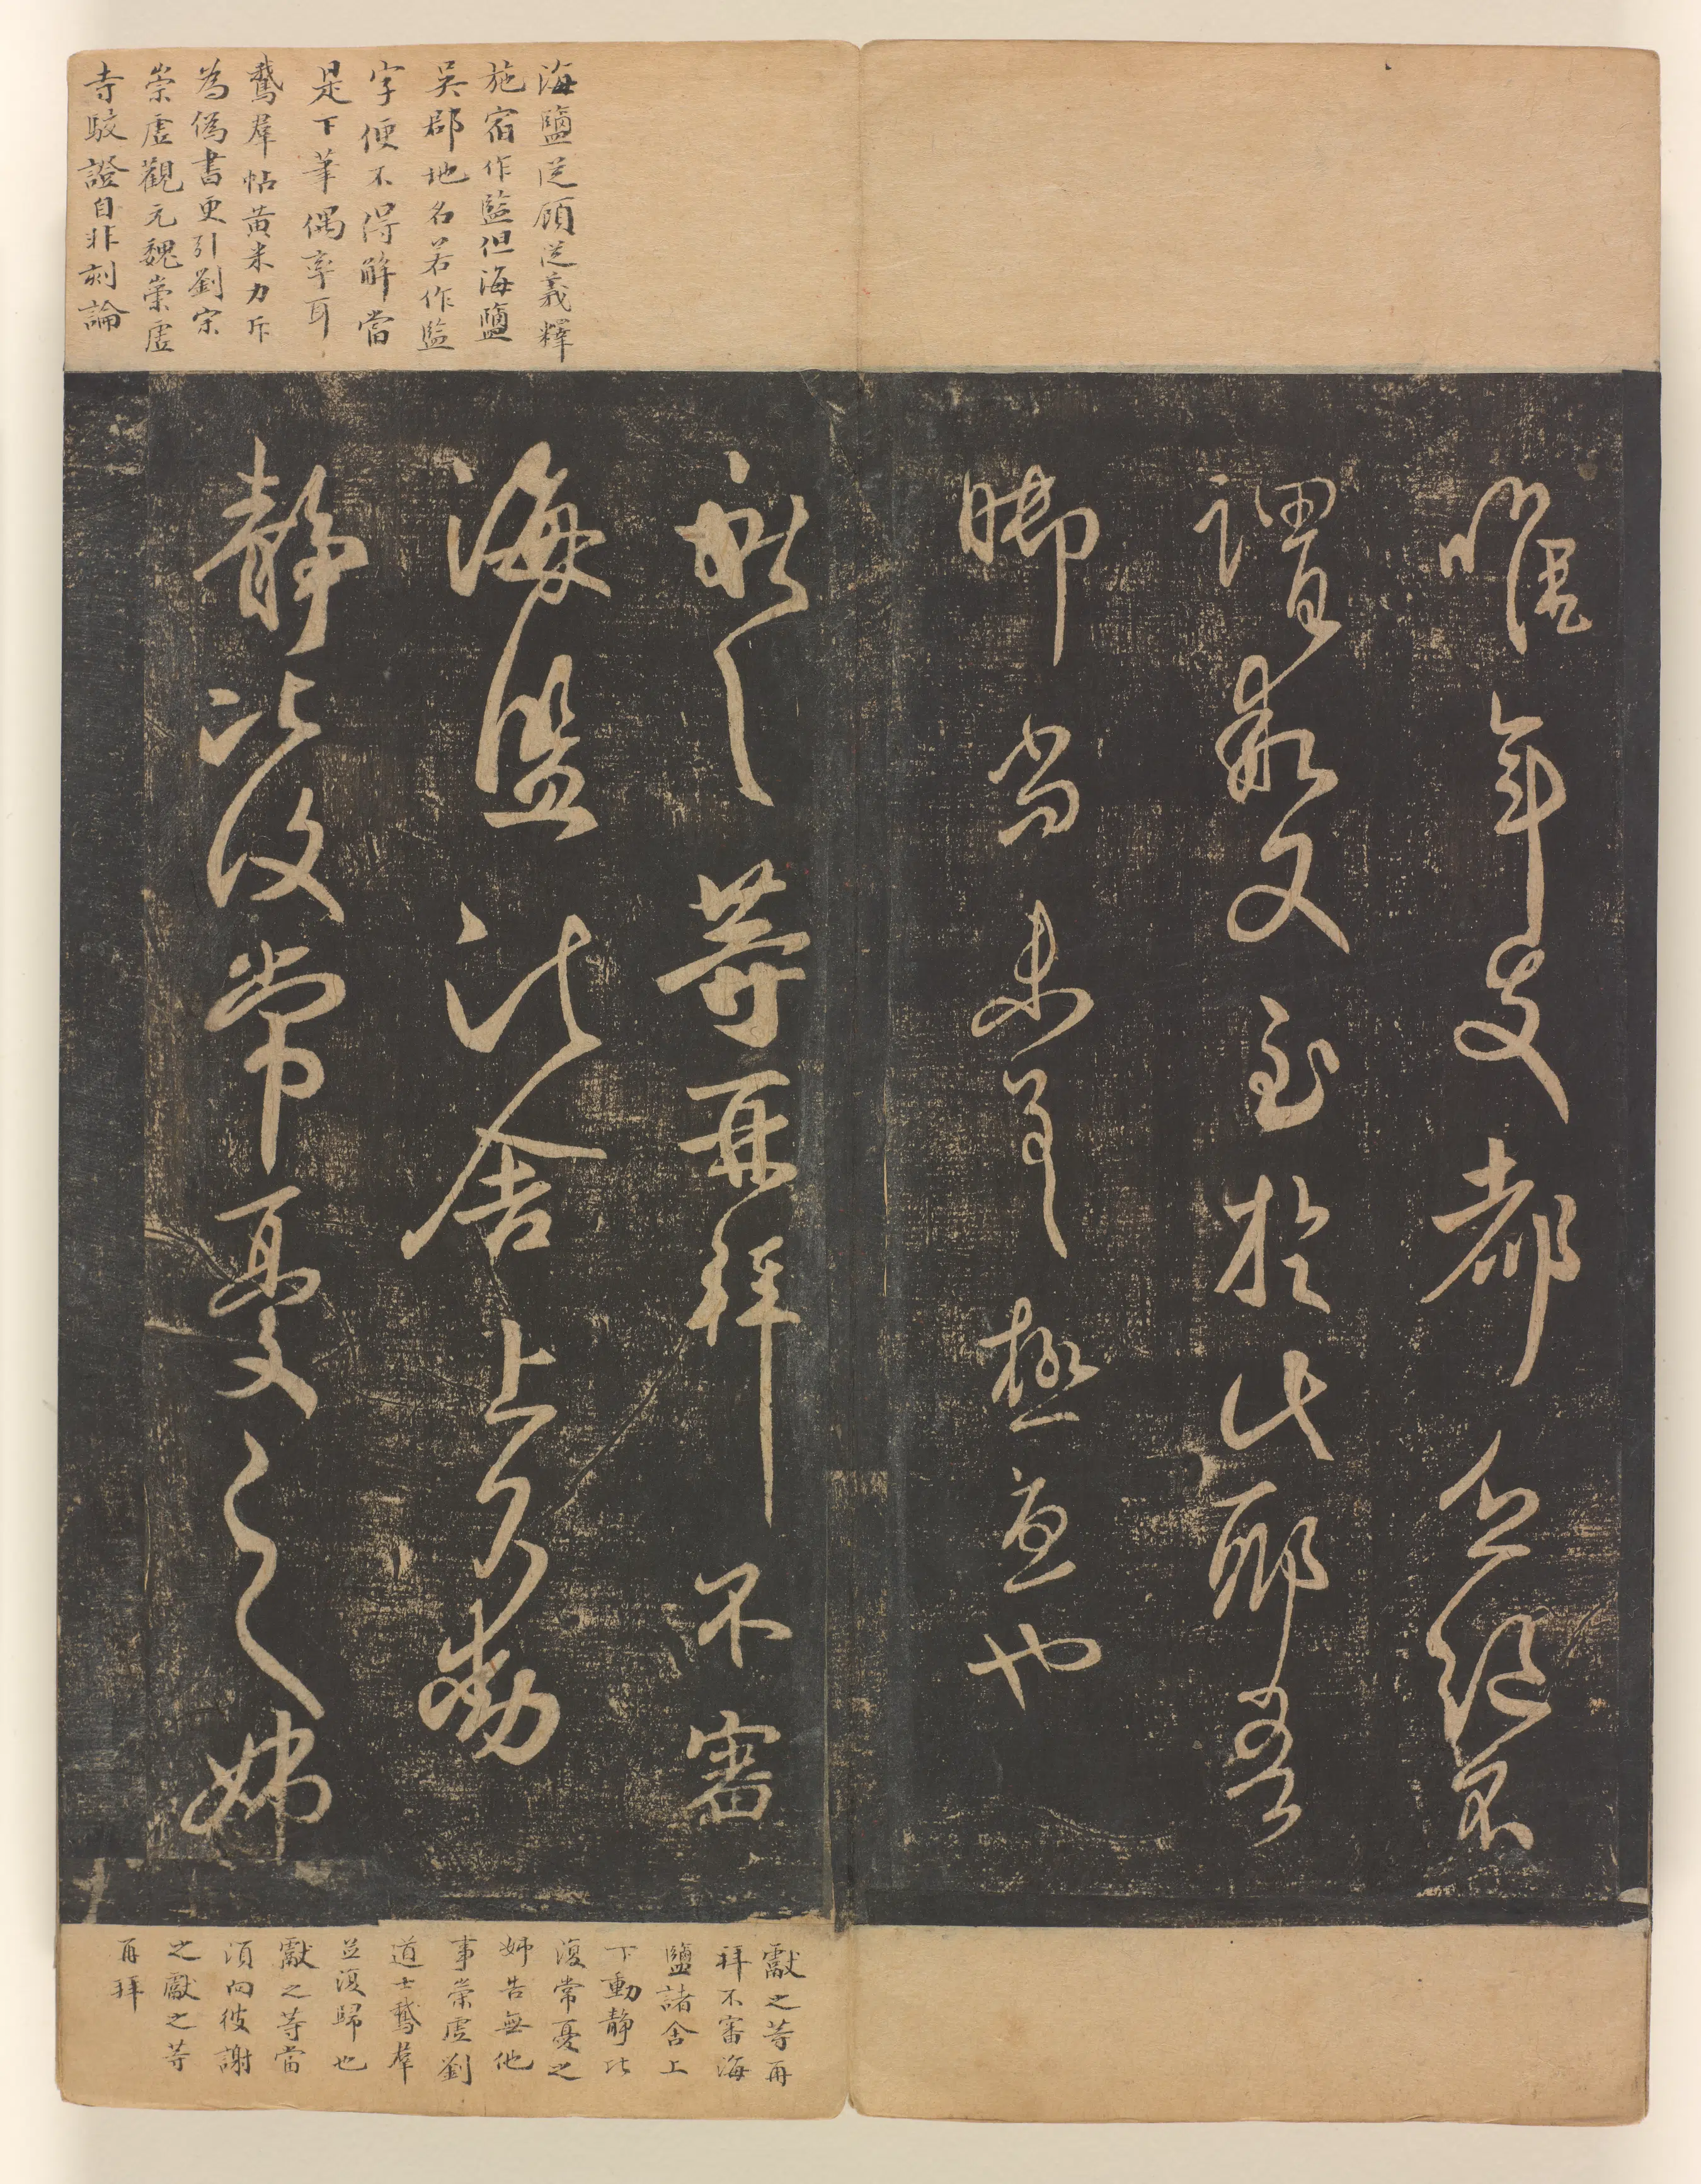 年 都
謂 又至於此耶吾
脚尚未差極 也
獻之等再拜不審
海監諸舍上下動
靜比復常憂之姊
海鹽從顧從義釋
施宿作監但海鹽
吳郡地名若作監
字便不得解當
是下筆偶率耳
鵞羣帖黃米力斥
為偽書更引劉宋
崇虛觀元魏崇虛
寺駮證自非刻論
獻之等再
拜不審海
鹽諸舍上
下動靜比
復常憂之
姊告無他
事崇虛劉
道士鵞羣
並復歸也
獻之等當
須向彼謝
之獻之等
再拜